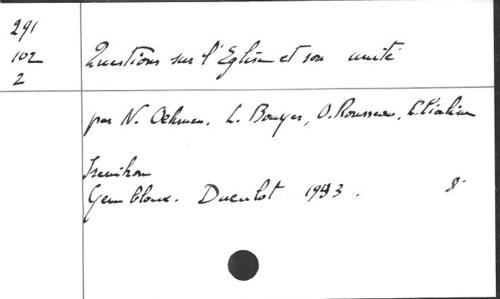 291
102
2
Questions sur l'Eglise et son unité
par N. Oehmen, L. Bouyer, O. Rousseau, C. Lialine
Irenikon
Gembloux. Duculot 1943. 8°